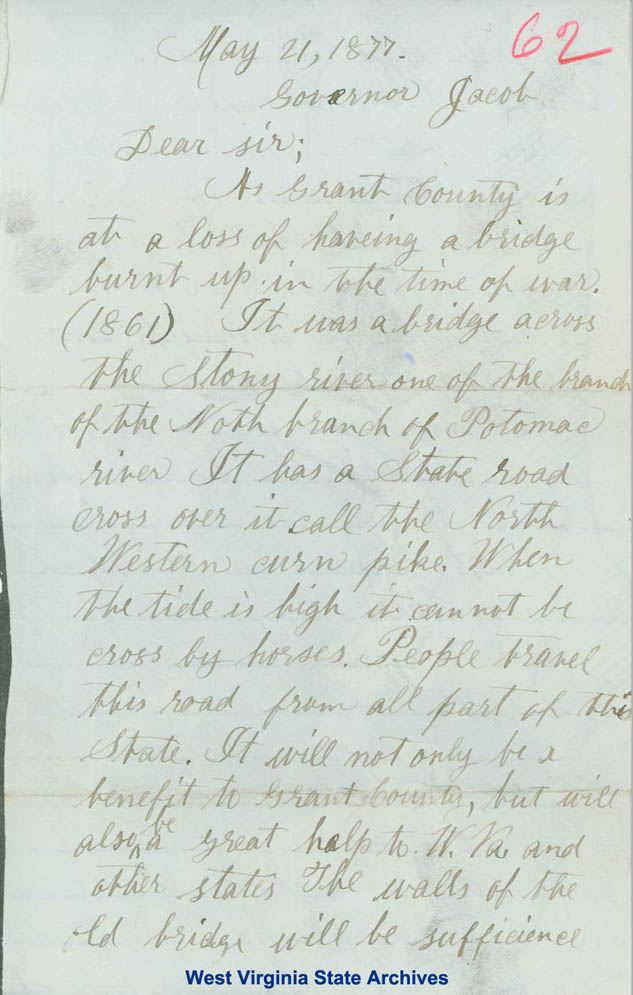 62
May 21, 1877.
Governor Jacob
Dear sir;
As Grant County is
at a loss of haveing a bridge
burnt up in the time of war.
(1861) It was a bridge across
the Stony river one of the branch
of the Noth branch of Potomac
river It has a State road
cross over it call the North
Western curn pike. When
the tide is high it cannot be
cross by horses. People travel
this road from all part of this
State. It will not only be a
benefit to Grant County, but will
also be a great help to W. Va. and
other states The walls of the
old bridge will be sufficience
West Virginia State Archives